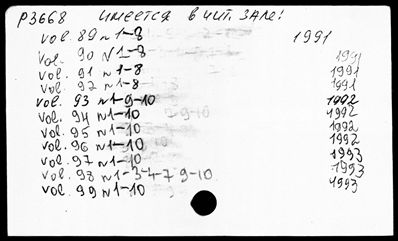 P3668 имеется в чит. зале!
vol. 89 N 1-8 1991
vol. 90 N 1-8 1991
vol. 91 N 1-8 1991
vol. 92 N 1-8 1991
vol. 93 N 1-9-10 1992
vol. 94 N 1-10 1992
vol. 95 N 1-10 1992
vol. 96 N 1-10 1992
vol. 97 N 1-10 1993
vol. 98 N 1-3-4-7 9-10 1993
vol. 99 N 1-10 1993